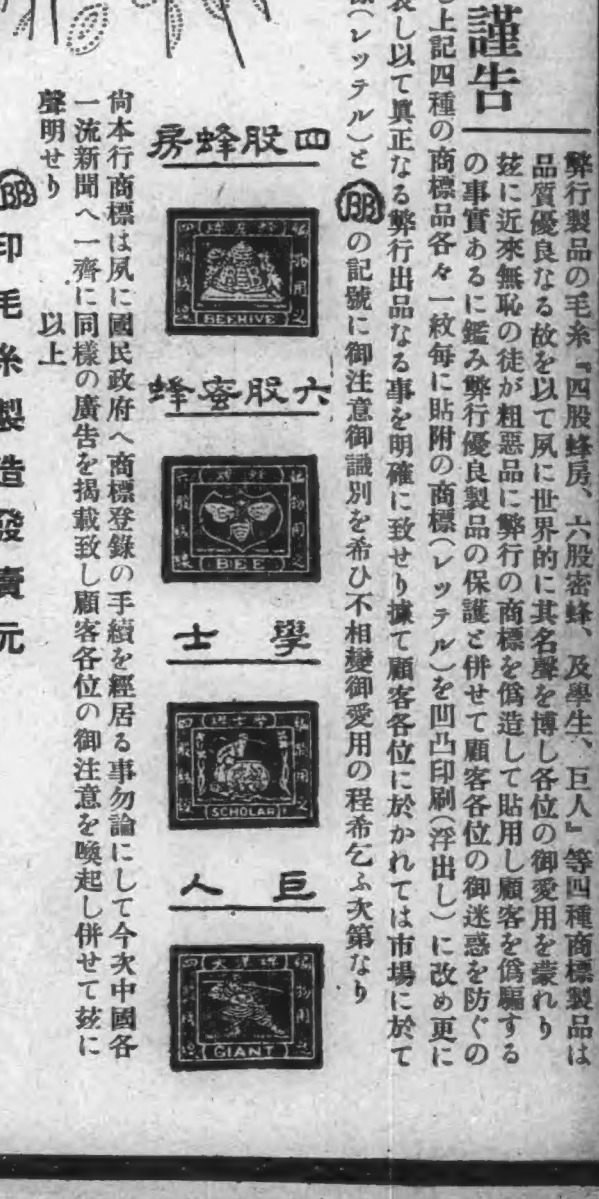 謹告
弊行製品の毛糸『四股蜂房、六股密蜂、及學生、巨人』等四種商標製品は
品質優良なる故を以て夙に世界的に其名聲を博し各位の御愛用を蒙れり
玆に近來無恥の徒が粗惡品に弊行の商標を僞造して貼用し顧客を僞騙する
の事實あるに鑑み弊行優良製品の保護と併せて顧客各位の御迷惑を防ぐの
上記四種の商標品各々一紋每に貼附の商標(レッテル)を凹凸印刷(浮出し)に改め更に
表し以て眞正なる弊行出品なる事を明確に致せり據て顧客各位に於かれては市場に於て
(レッテル)と BB の記號に御注意御識別を希ひ不相變御愛用の程希乞ふ次第なり
四股蜂房
BEEHIVE
六股蜜蜂
BEE
學士
SCHOLAR
巨人
GIANT
尙本行商標は夙に國民政府へ商標登錄の手續を經居る事勿論にして今次中國各
一流新聞へ一齊に同樣の廣告を揭載致し顧客各位の御注意を喚起し併せて玆に
聲明せり　以上
BB 印毛糸製造發賣元